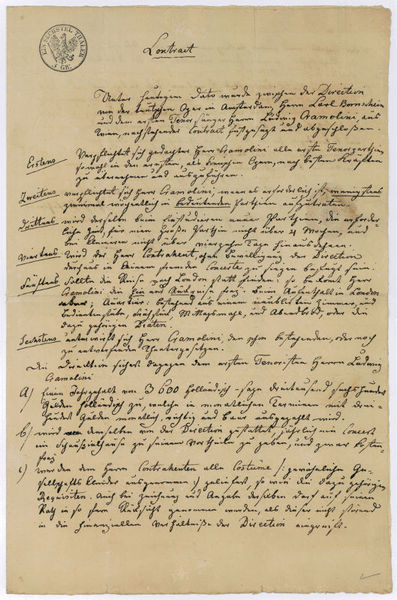 EIN SECHSTEL THALER
5 GR.
Contract
Unter heutigem Dato wurde zwischen der Direction
von der deutschen Oper in Amsterdam, Herrn Carl Bornschein
und dem ersten Tenor Sänger Herrn Ludwig Cramolini, aus
Wien, nachstehender Contract festgesetzt und abgeschlossen.
Erstens Verpflichtet sich gedachter Herr Cramolini alle ersten Tenorparthien,
sowohl in der ernsten, als komischen Oper, nach besten Kräften
zu übernehmen und auszuführen.
Zweitens verpflichtet sich Herr Cramolini, wenn es erforderlich ist, wenigstens
wöchentlich in bedeutenden Parthien aufzutreten.
Drittens wird derselbe beim einstudieren neuer Parthien, die erforder
liche Zeit, für eine große Parthie nicht über Wochen, und
bei kleineren nicht über vierzehn Tage hinausdehnen.
Viertens Wird der Herr Contrahent, ohne Bewilligung der Direction
durchaus in keinem fremden Concerte zu singen befugt sein.
Fünftens Sollte die Reise zur London statt finden, so bekommt Herr
Cramolini die Hin und freie beim Aufenthalt in London
Quartier bestehend aus einem möblirten Zimmer, und
Frühstück, Mittagsmahl, und Abendbrod, oder die
dazu gehörigen Diäten.
Sechstens unterwirft sich Herr Cramolini den schon bestehenden, oder noch
zu entwerfenden Theatergesetzen.
Die Direction sichert dagegen dem ersten Tenoristen Herrn Ludwig
Cramolini
A) Einen Jahrgehalt von 3600 holländisch sage dreitausend sechshundert
Gulden holländisch zu welche in monatlichen Terminen mit drei-
hundert Gulden monatlich, richtig und baar ausgezahlt wird.
b) wird demselben von der Direction gestattet jährlich ein Concert
im Schauspielhause zu seinem Vortheile zu geben, und zwar kosten
frei
c) werden dem Herrn Contrahenten alle Costume /: gewöhnliche Ge-
sellschafts Kleider ausgenommen :/ geliefert, so wie die dazu gehörigen
Requisiten. Auch bei Zeichnung und Angabe derselben darf auf seinen
Rath in so fern Rücksicht genommen werden, als dieser nicht störend
in die finanziellen Verhältnisse der Direction eingreift.